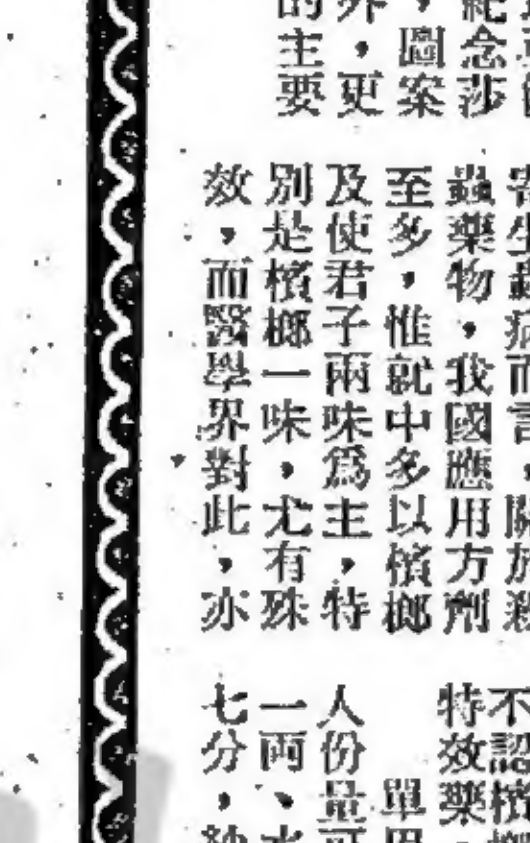 紀念莎
，圖案
外，更
的主要
寄生蟲病而言，關於殺
蟲藥物，我國應用方劑
至多，惟就中多以檳榔
及使君子兩味爲主，特
別是檳榔一味，尤有殊
效，而醫學界對此，亦
不認檳榔
特效藥，
單用
人份量可
一兩、水
七分，